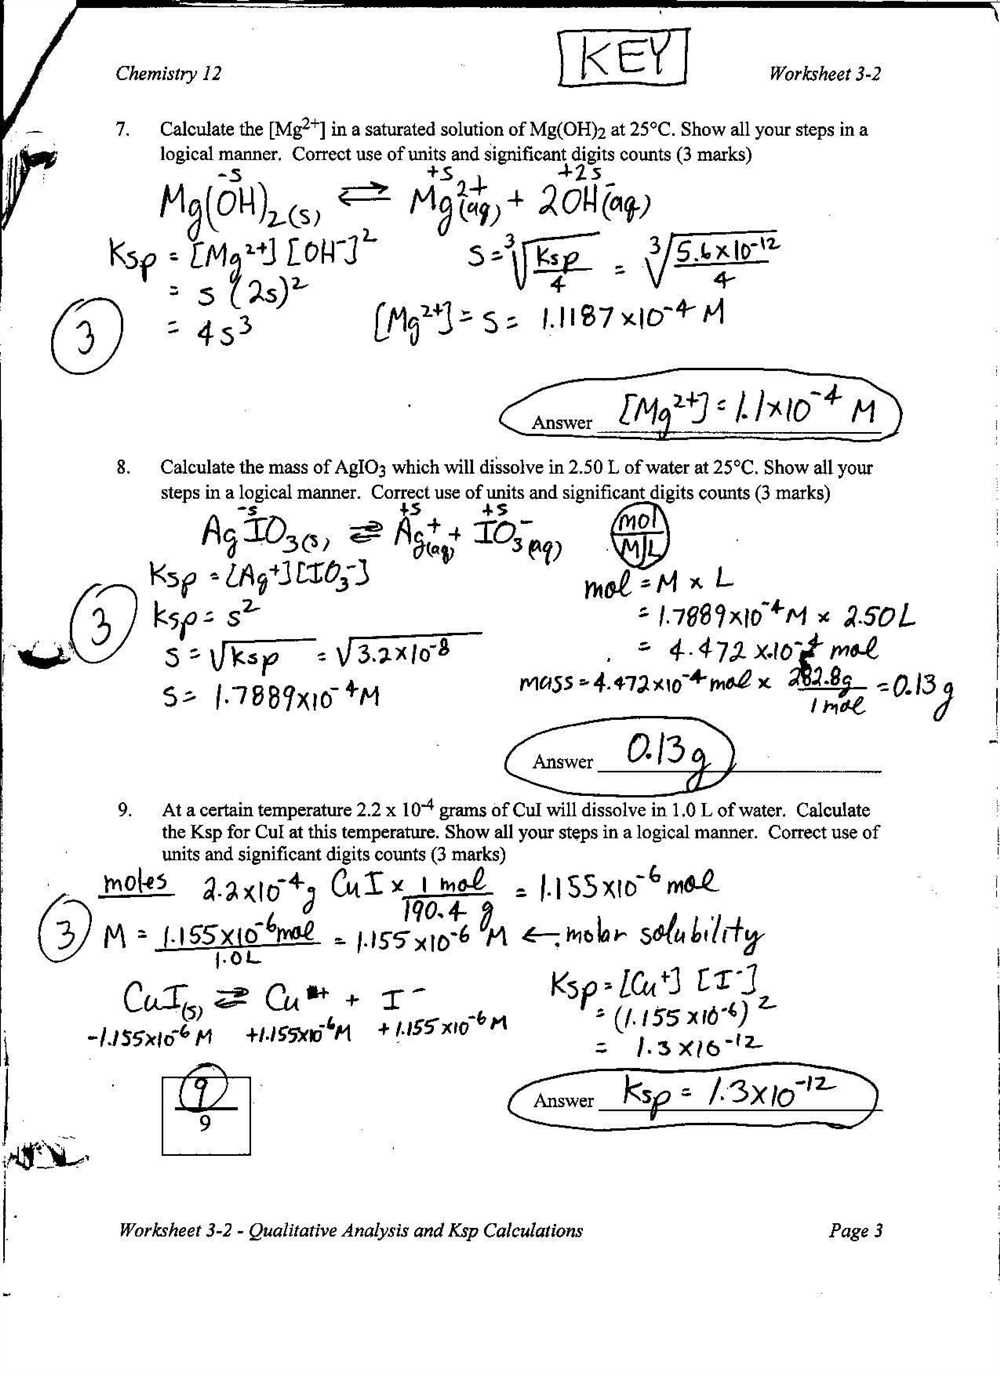 KEY
Chemistry 12 Worksheet 3-2
7. Calculate the [Mg2+] in a saturated solution of Mg(OH)2 at 25°C. Show all your steps in a
logical manner. Correct use of units and significant digits counts (3 marks)
-s +s +2s
Mg(OH)2(s) ⇌ Mg2+(aq) + 2OH-(aq)
Ksp = [Mg2+] [OH-]2
= s (2s)2
= 4s3
s = 3√Ksp/4 = 3√5.6x10-12/4
[Mg2+] = s = 1.1187x10-4 M
3
Answer [Mg2+] = 1.1x10-4 M
8. Calculate the mass of AgIO3 which will dissolve in 2.50 L of water at 25°C. Show all your
steps in a logical manner. Correct use of units and significant digits counts (3 marks)
-s +s +s
AgIO3(s) ⇌ Ag+(aq) + IO3-(aq)
mol
M|L
Ksp = [Ag+][IO3-]
Ksp = s2
s = √Ksp = √3.2x10-8
s = 1.7889x10-4M
3
mol = M x L
= 1.7889x10-4M x 2.50L
= 4.472x10-4 mol
mass = 4.472x10-4 mol x 282.8g/1 mol = 0.13 g
Answer 0.13g
9. At a certain temperature 2.2 x 10-4 grams of CuI will dissolve in 1.0 L of water. Calculate
the Ksp for CuI at this temperature. Show all your steps in a logical manner. Correct use of
units and significant digits counts (3 marks)
moles 2.2x10-4g CuI x 1 mol/190.4 g = 1.155x10-6 mol
3
M = 1.155x10-6mol/1.0L = 1.155x10-6 M ← molar solubility
CuI(s) ⇌ Cu+ + I-
-1.155x10-6 M +1.155x10-6M +1.155x10-6M
Ksp = [Cu+] [I-]
= (1.155x10-6)2
= 1.3x10-12
Answer Ksp = 1.3x10-12
9
9
Worksheet 3-2 - Qualitative Analysis and Ksp Calculations Page 3